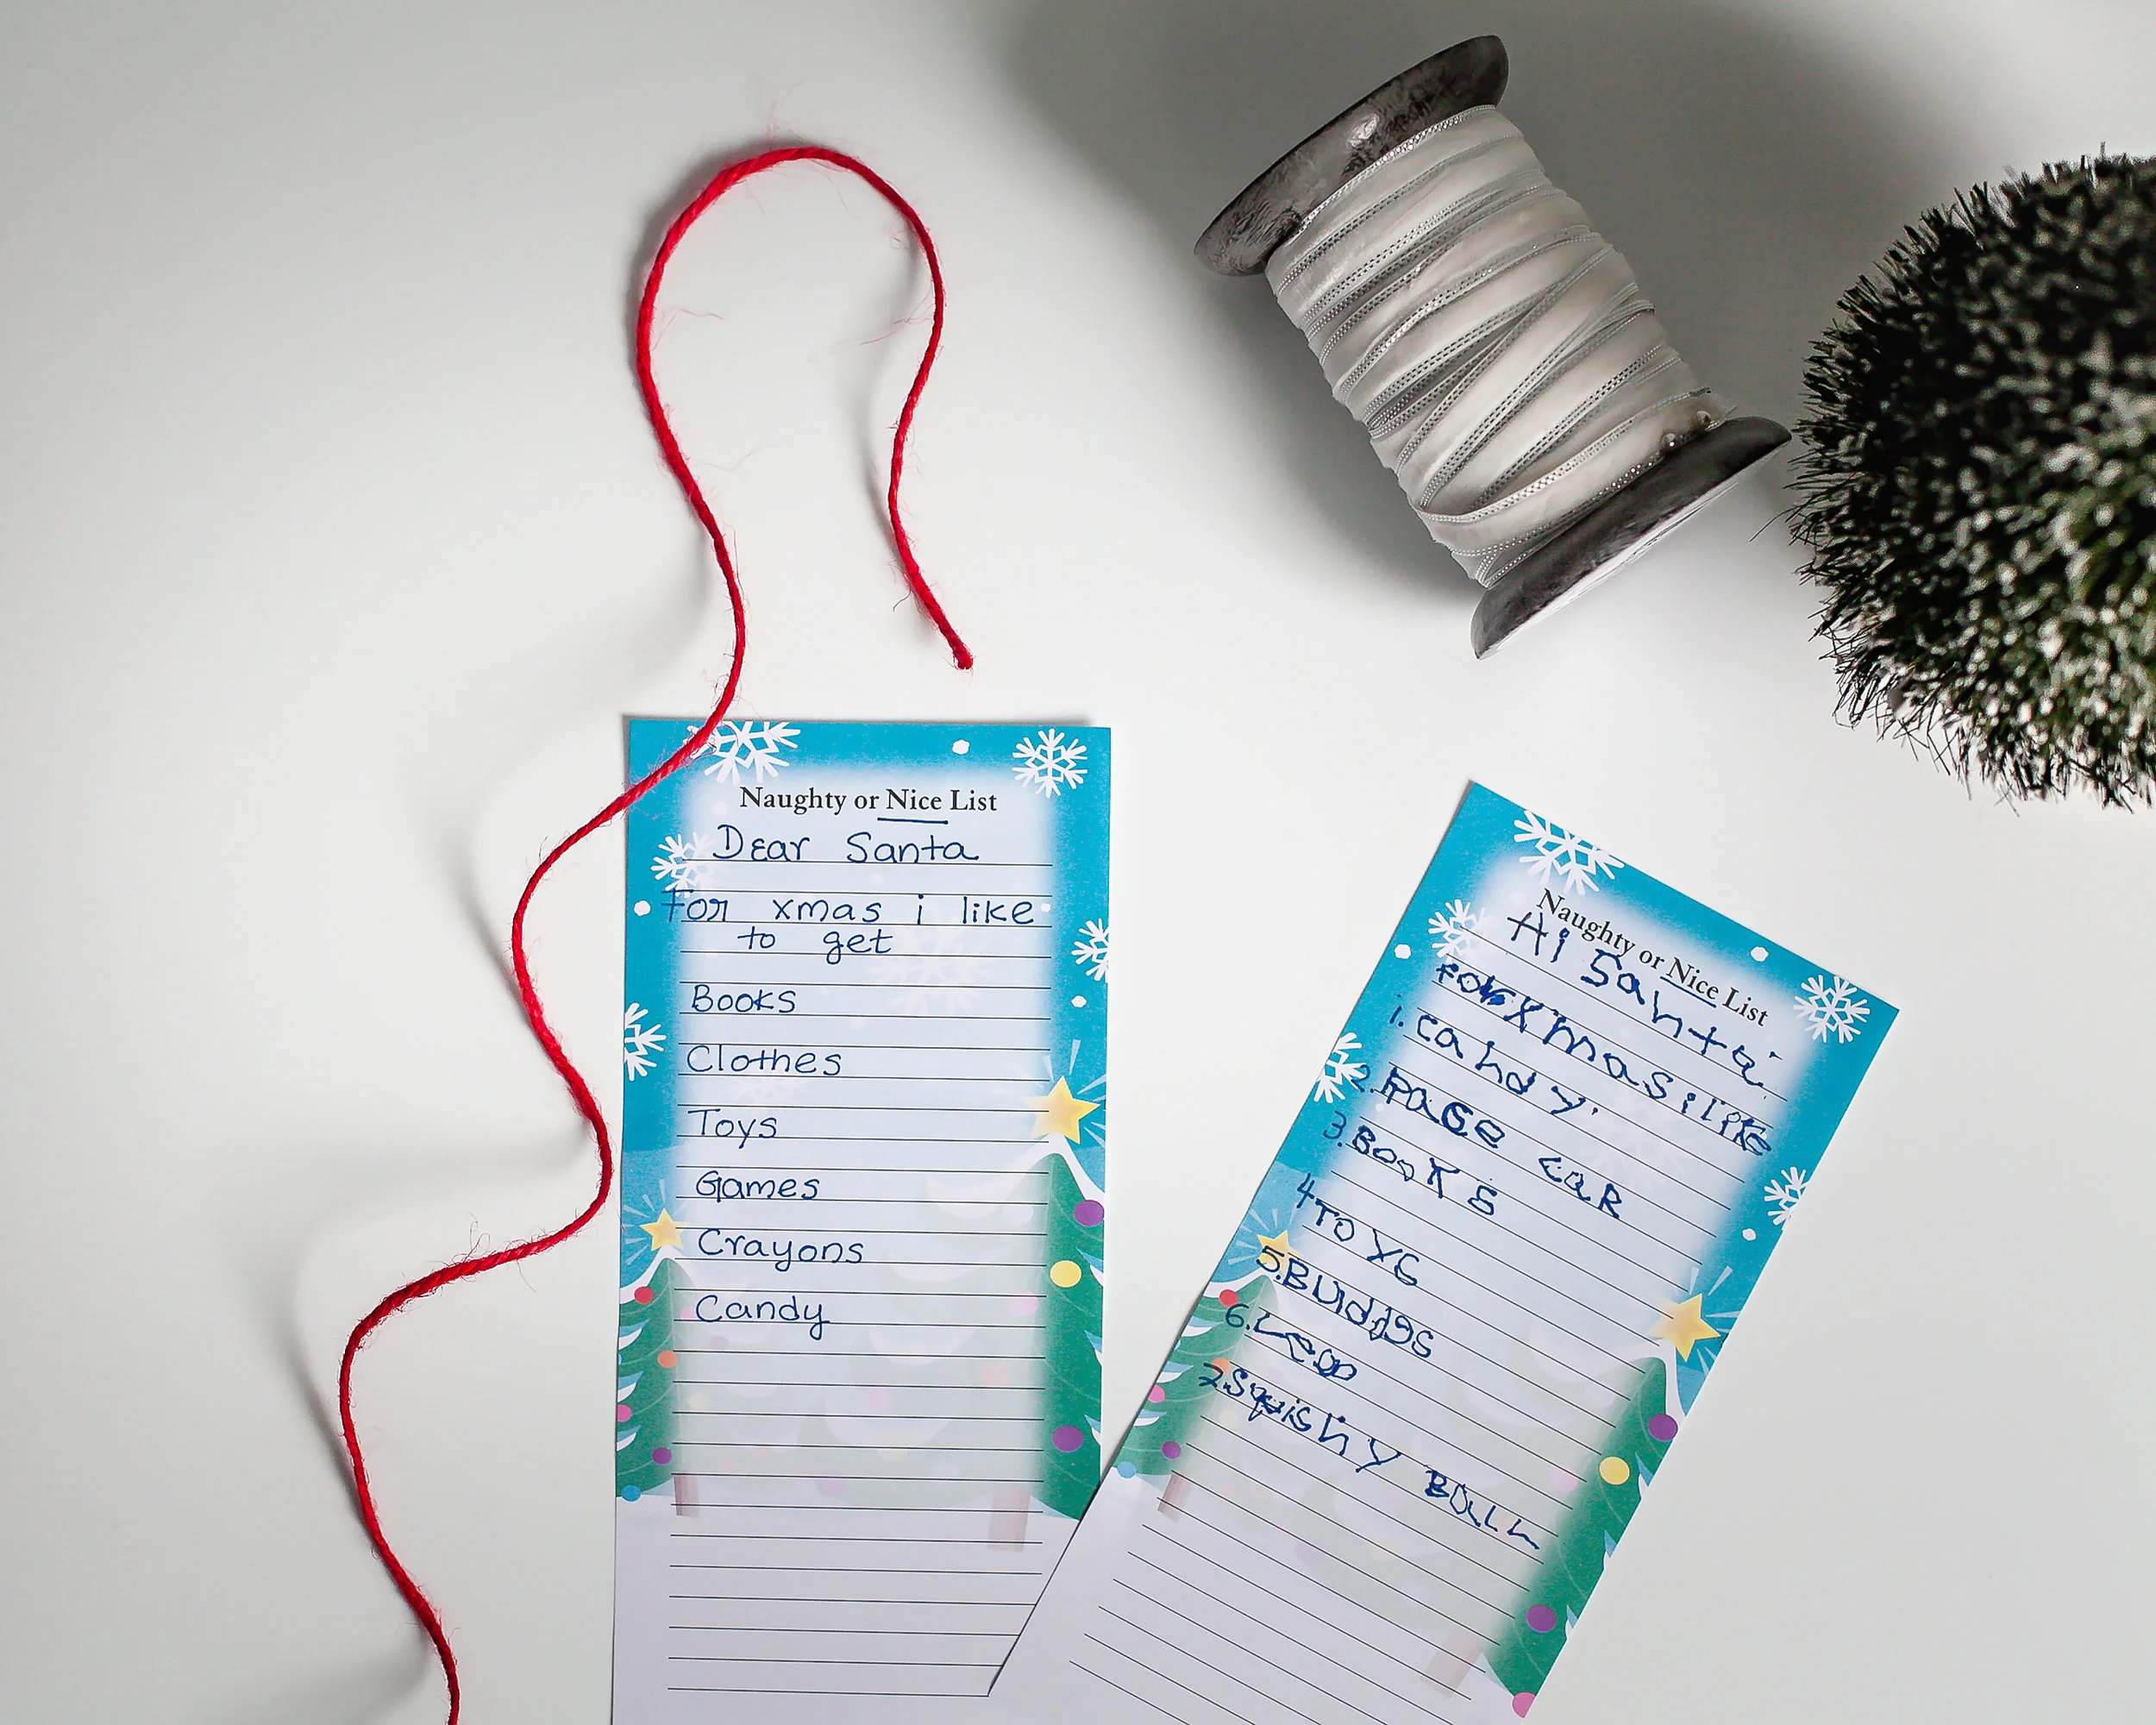 Naughty or Nice List
Dear Santa
For xmas i like
to get
Books
Clothes
Toys
Games
Crayons
Candy
Naughty or Nice List
Hi Santa
for Xmas i like
1. candy.
2. Race caR
3. Books
4 TOYS
5.
6.
7. Squishy BaLL